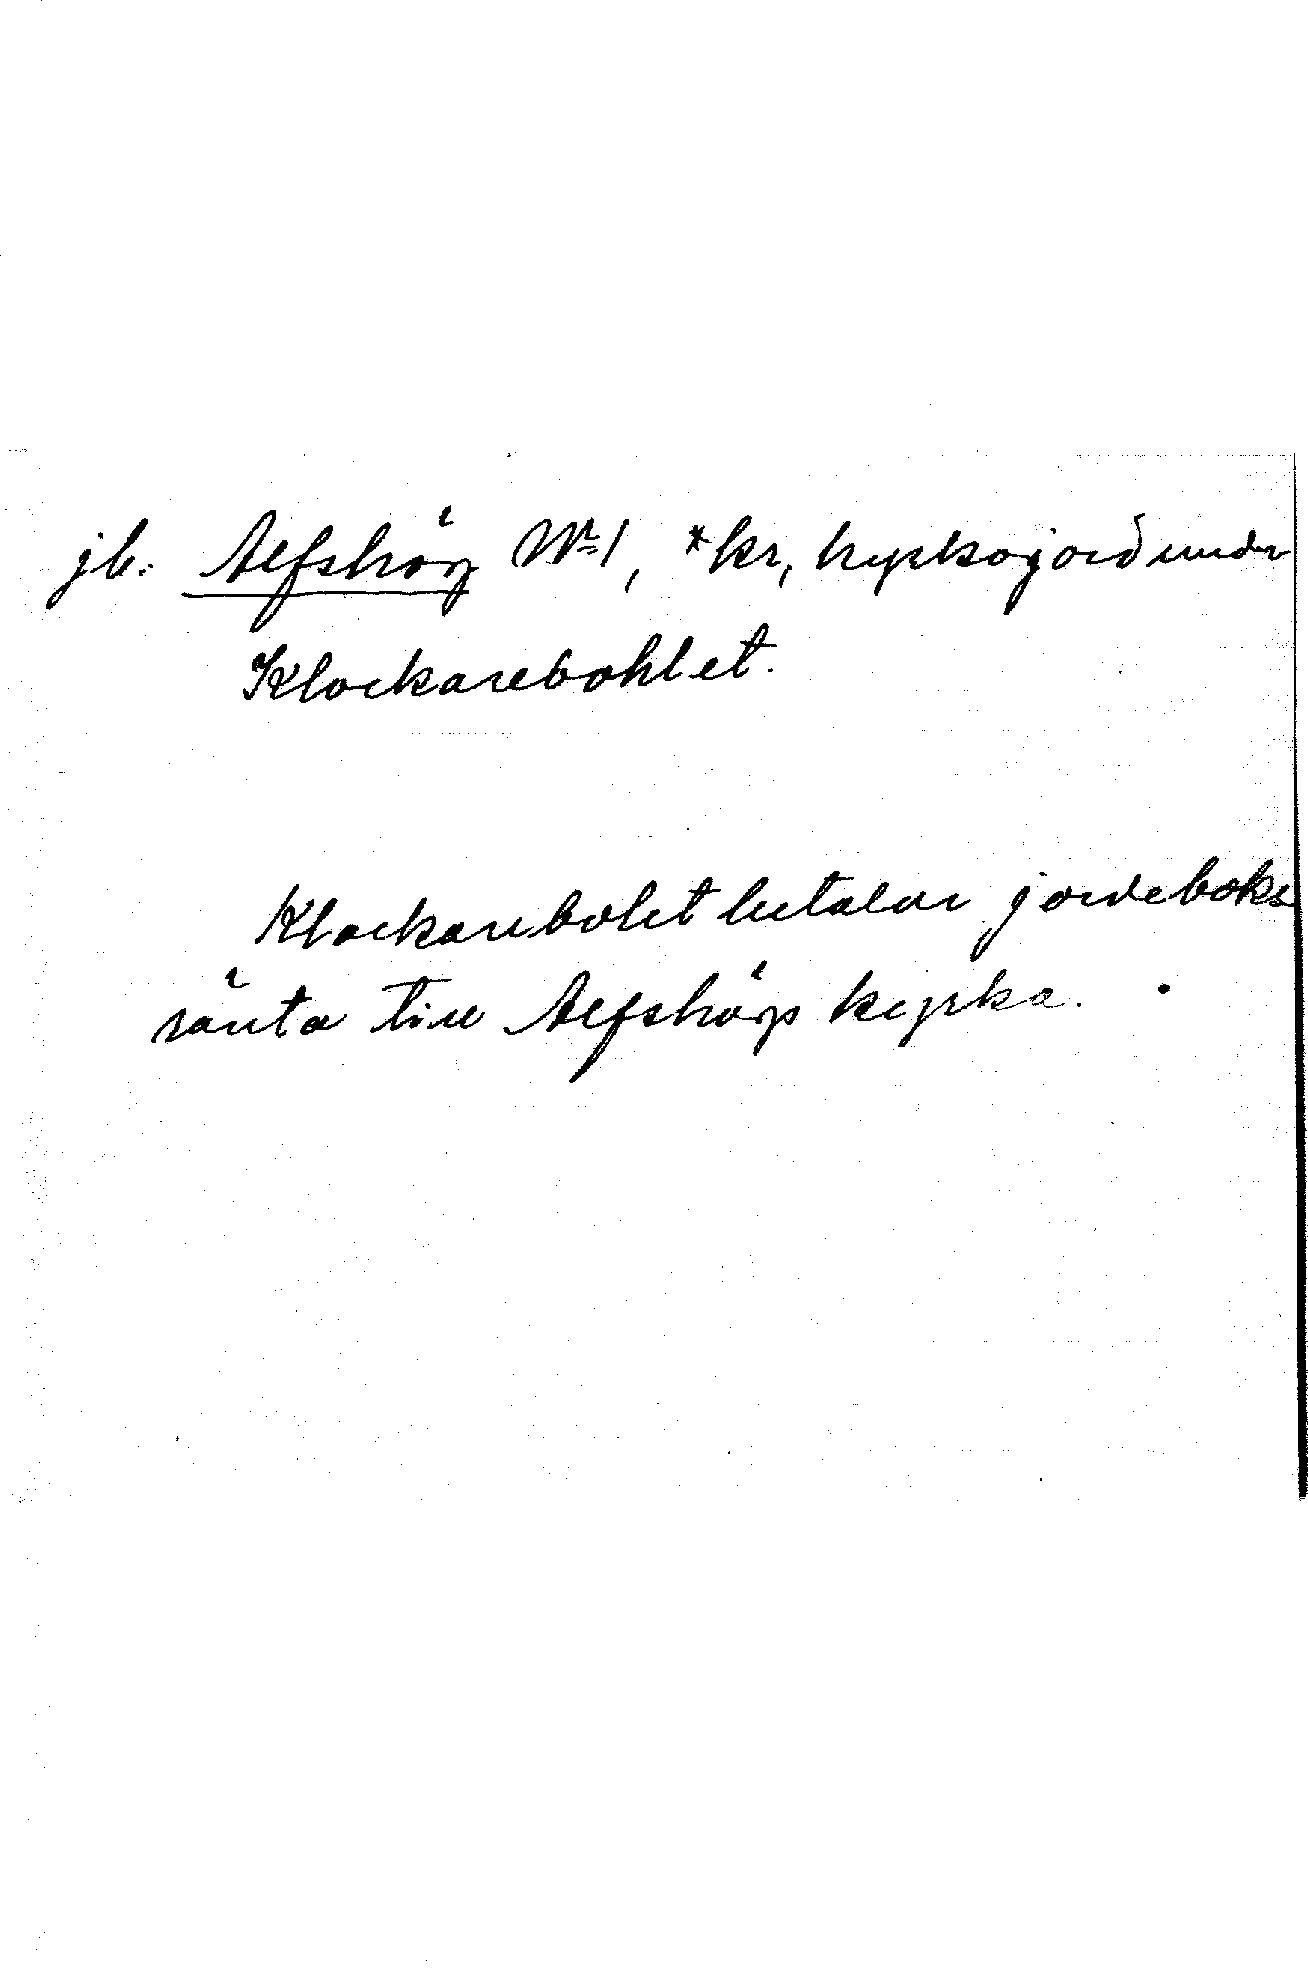 jb. Alfshög Nr 1, *kr, kyrkojord under
Klockarebohlet.
Klockarebolet betalar jordeboks
ränta till Alfshögs kyrka.